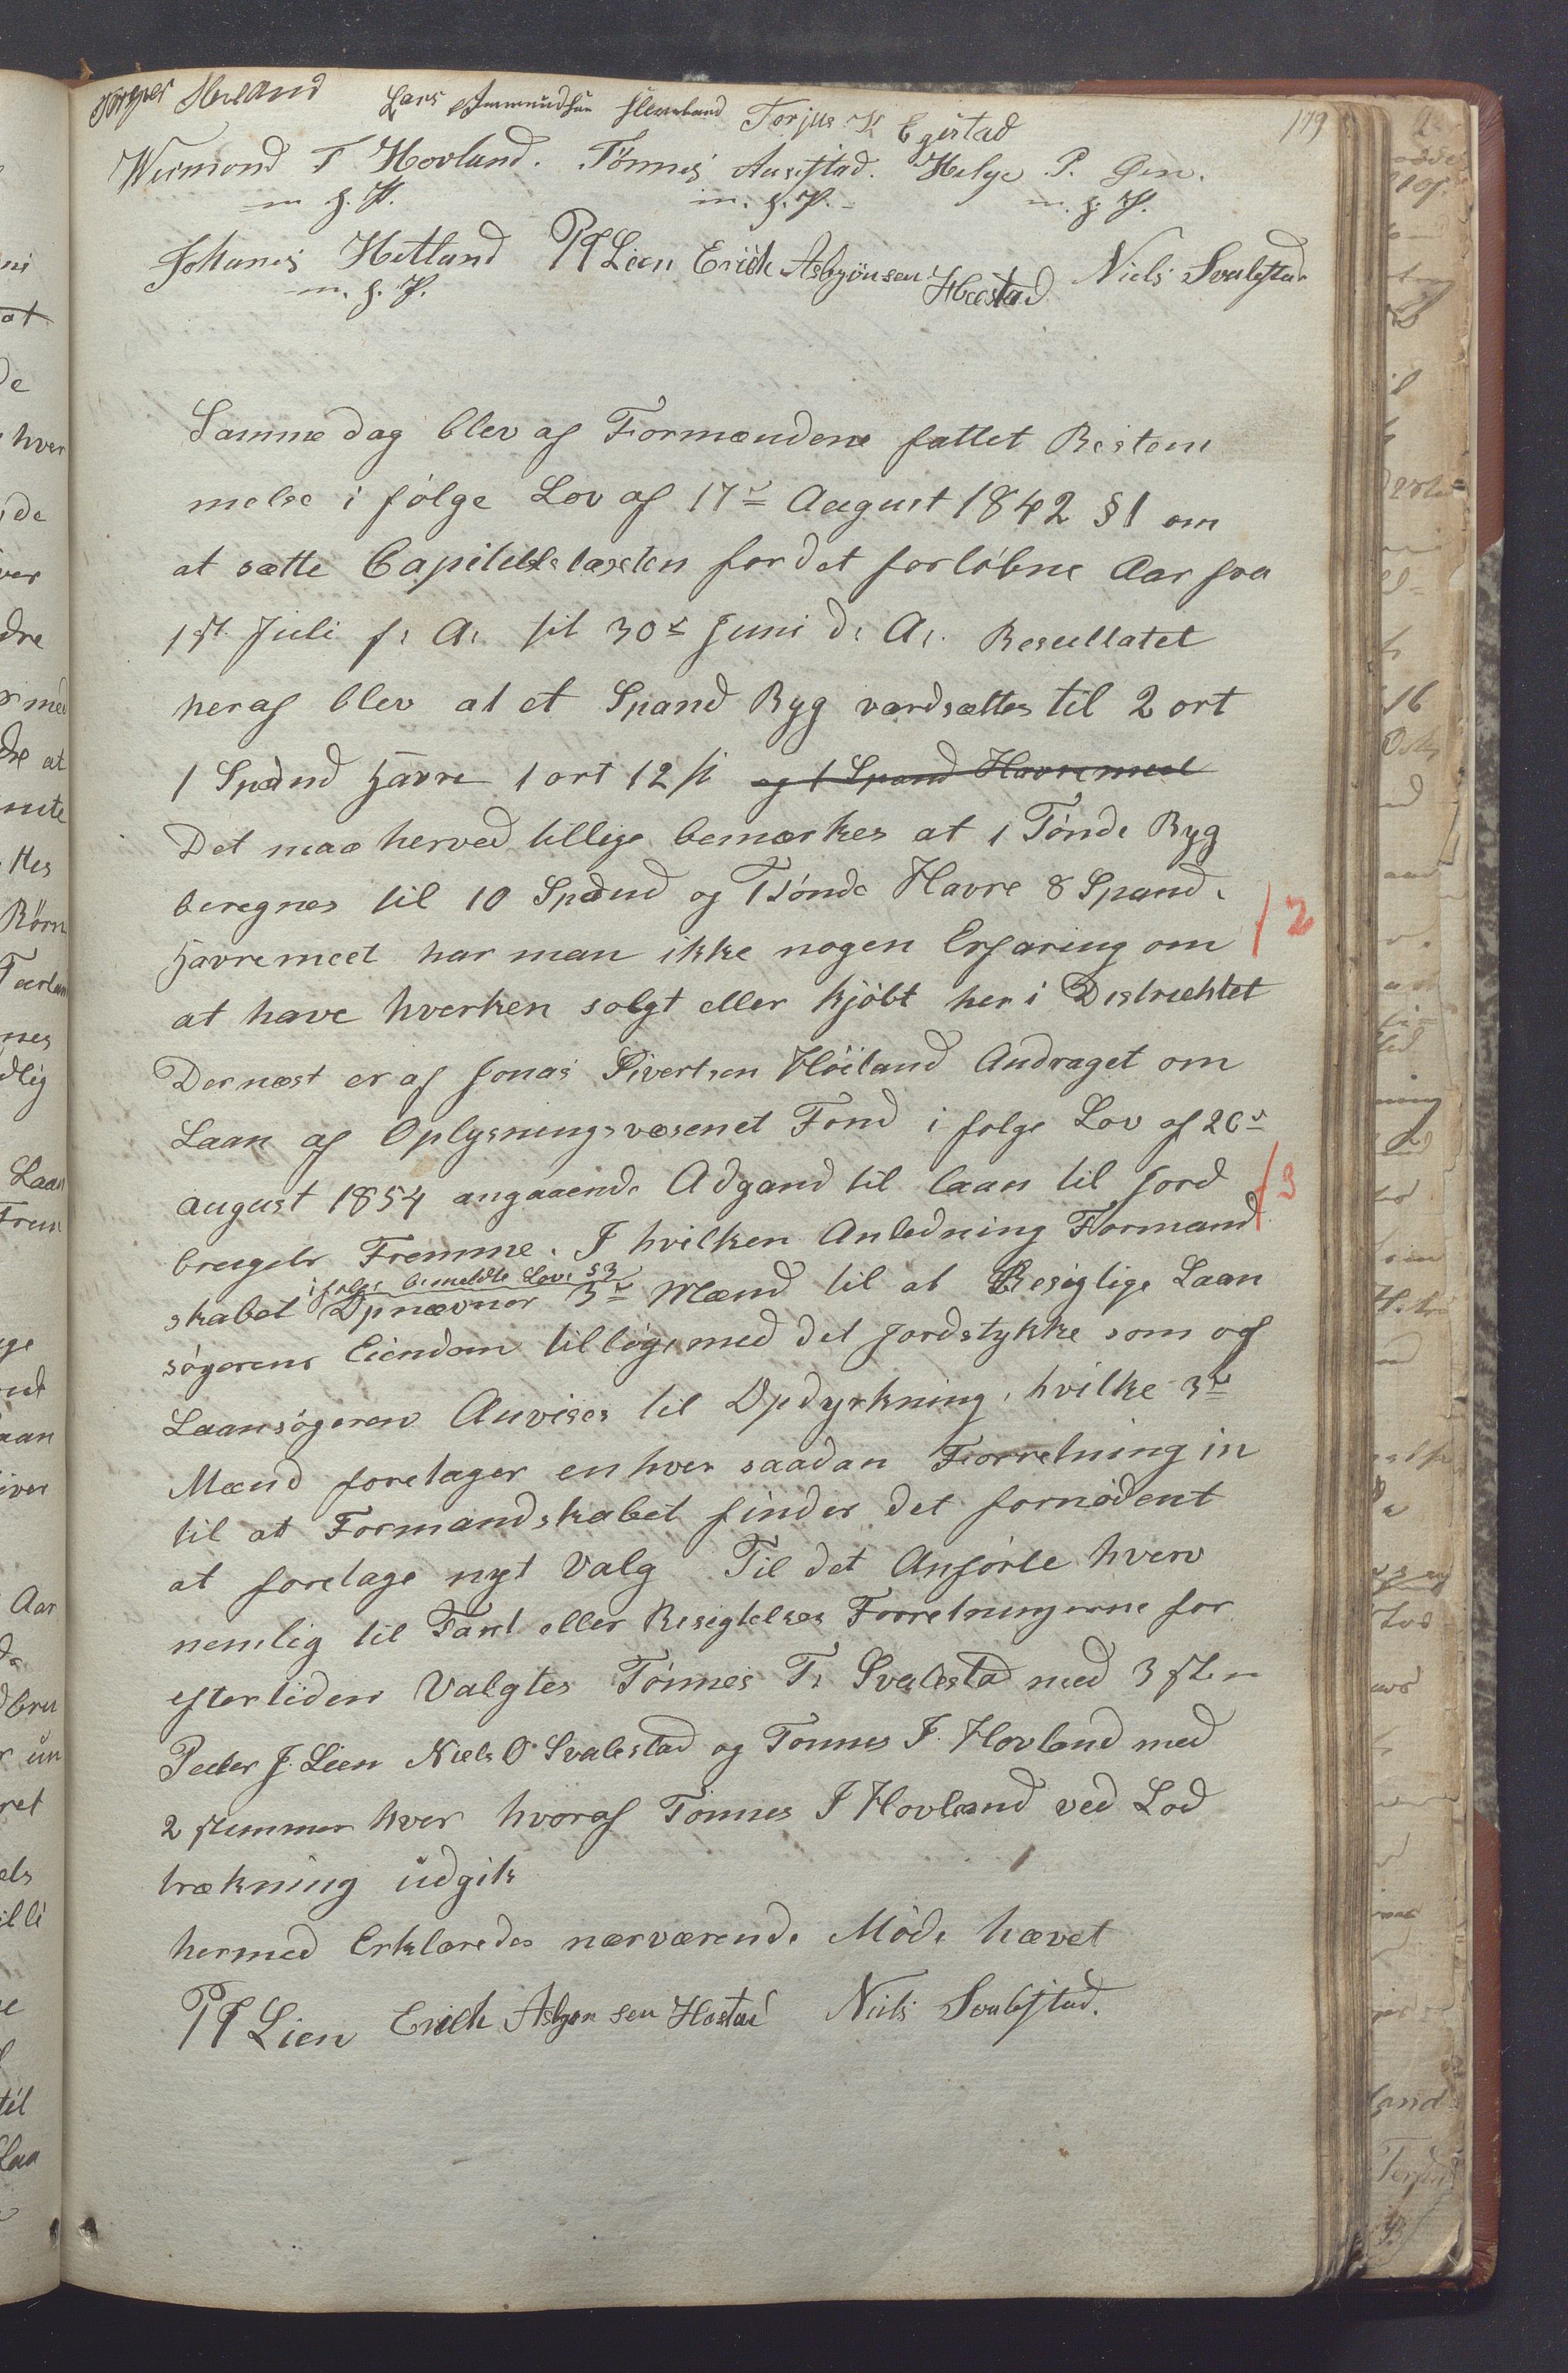 Hetland Lars Ammundsen Torjus K Egestad 179
Wermond T Hovland. Tönnes Auestad. Helge P. Øen.
m. p. P. m. p. P. m. p. P.
Johanes Hetland PJ Lien Erick Asbjönsen Hæstad Niels Svalestad
m. p. P.
Samme dag blev af Formændene fattet Bestem
melse i følge Lov af 17de August 1842 § 1 om
at sætte Capitelstaxten for det forløbne Aar fra
1ste Juli f. A. til 30te Juni d. A. Resultatet
heraf blev at et Spand Byg værdsættes til 2 ort
1 Spand Havre 1 ort 12 s og 1 Spand Havremeel
Det maa herved tillige bemærkes at 1 Tønde Byg
beregnes til 10 Spand og 1 Tønde Havre 8 Spand.
Havremeel har man ikke nogen Erfaring om 12
at have hverken solgt eller kjöbt her i Districhtet
Dernæst er af Jonas Sivertsen Höiland Andraget om
Laan af Oplysningsvæsenet Fond i følge Lov af 26de
august 1854 angaaende Adgand til laan til Jord 13
brugets Fremme. I hvilken Anledning Formand
i følge bemeldte Lovs § 3
skabet Opnævner 3de Mænd til at Besigtige Laan
søgerens Eiendom tillige med det Jordstykke som af
Laansøgeren Anvises til Opdyrkning, hvilke 3de
Mænd foretager en hver saadan Forretning in
til at Formandskabet finder det fornødent
at foretage nyt Valg Til det Anførte hverv
nemlig til Taxt eller Besigtelses Forretningerne for
eftertiden Valgtes Tønnes T. Svalestad med 3 st.r
Peder J. Lien Niels O Svalestad og Tønnes I. Hovland med
2 stemmer hver hvoraf Tønnes I Hovland ved Lod
trækning udgik
hermed Erklæredes nærværende Møde hævet
PJ Lien Erick Asbjønsen Hæstad Niels Svalestad.